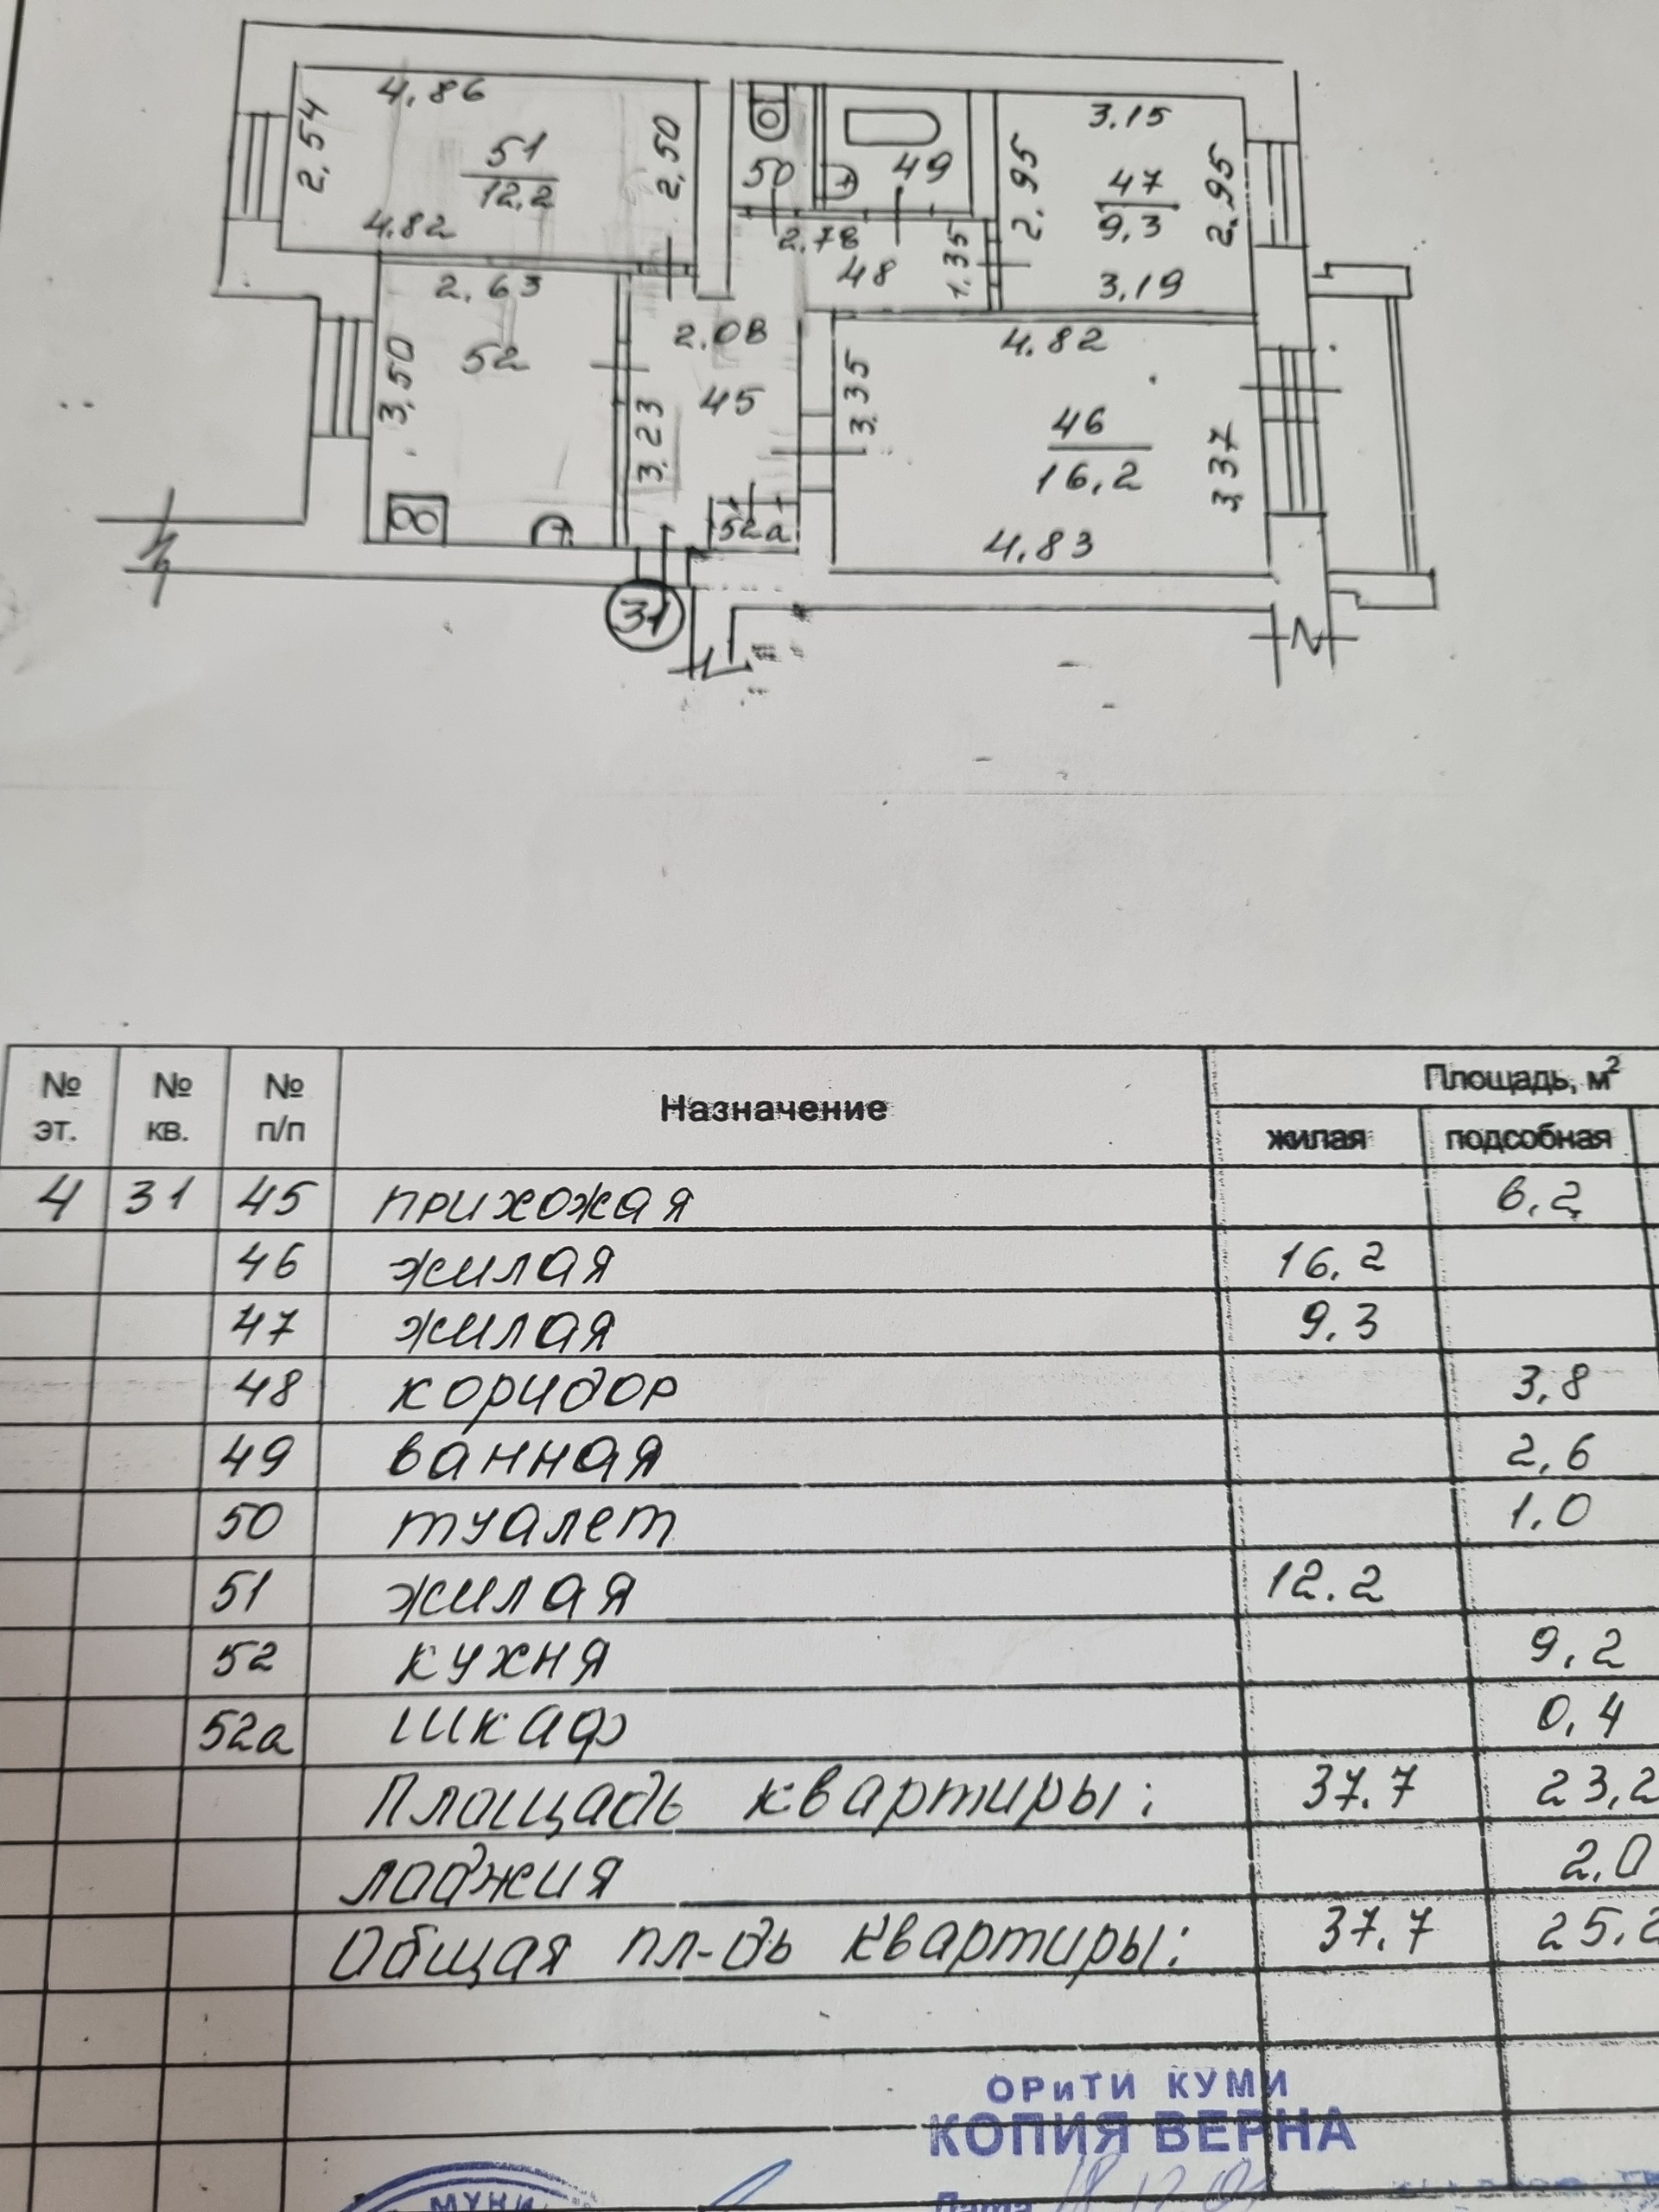 4.86
2.54
51
12.2
2.50
4.82
50
49
3.15
2.95
47
9.3
2.95
3.19
2.78
48
1.35
2.63
52
3.50
2.08
45
3.23
52а
3.35
4.82
46
16,2
3,37
4.83
31
№ эт. № кв. № п/п Назначение Площадь, м²
жилая подсобная
4 31 45 прихожая 6,2
46 жилая 16,2
47 жилая 9.3
48 коридор 3,8
49 ванная 2,6
50 туалет 1,0
51 жилая 12.2
52 кухня 9,2
52а шкаф 0,4
Площадь квартиры: 37.7 23,2
лоджия 2,0
Общая пл-дь квартиры: 37.7 25,2
ОРиТИ КУМИ
КОПИЯ ВЕРНА
МУНИ
Дата